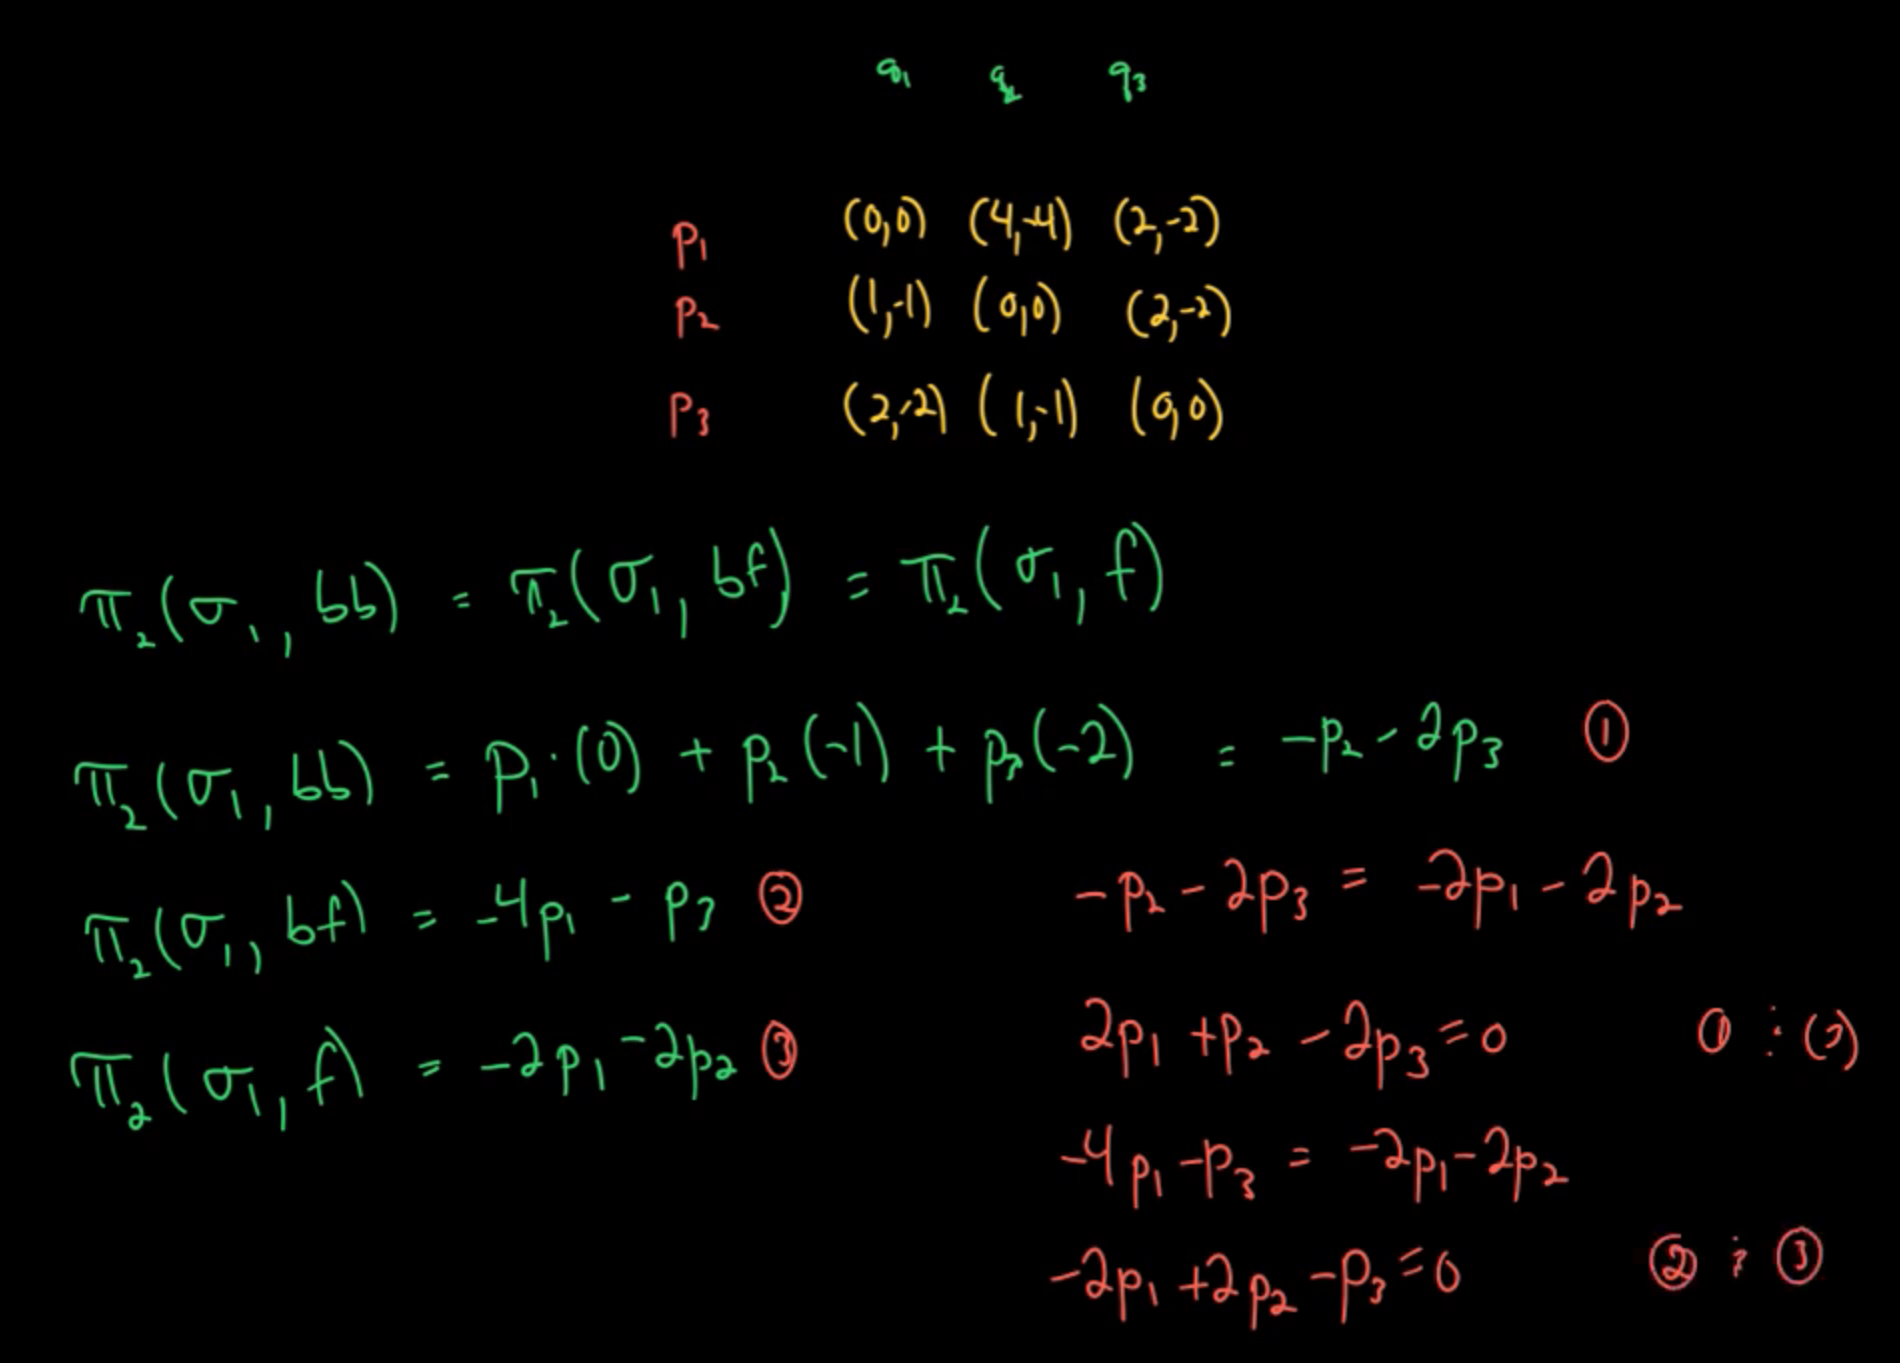 q₁ q₂ q₃
p₁ (0,0) (4,-4) (2,-2)
p₂ (1,-1) (0,0) (2,-2)
p₃ (2,-2) (1,-1) (0,0)
π₂(σ₁, bb) = π₂(σ₁, bf) = π₂(σ₁, f)
π₂(σ₁, bb) = p₁·(0) + p₂(-1) + p₃(-2) = -p₂ - 2p₃ ①
π₂(σ₁, bf) = -4p₁ - p₃ ②
π₂(σ₁, f) = -2p₁ - 2p₂ ③
-p₂ - 2p₃ = -2p₁ - 2p₂
2p₁ + p₂ - 2p₃ = 0 ① : (3)
-4p₁ - p₃ = -2p₁ - 2p₂
-2p₁ + 2p₂ - p₃ = 0 ② : ③